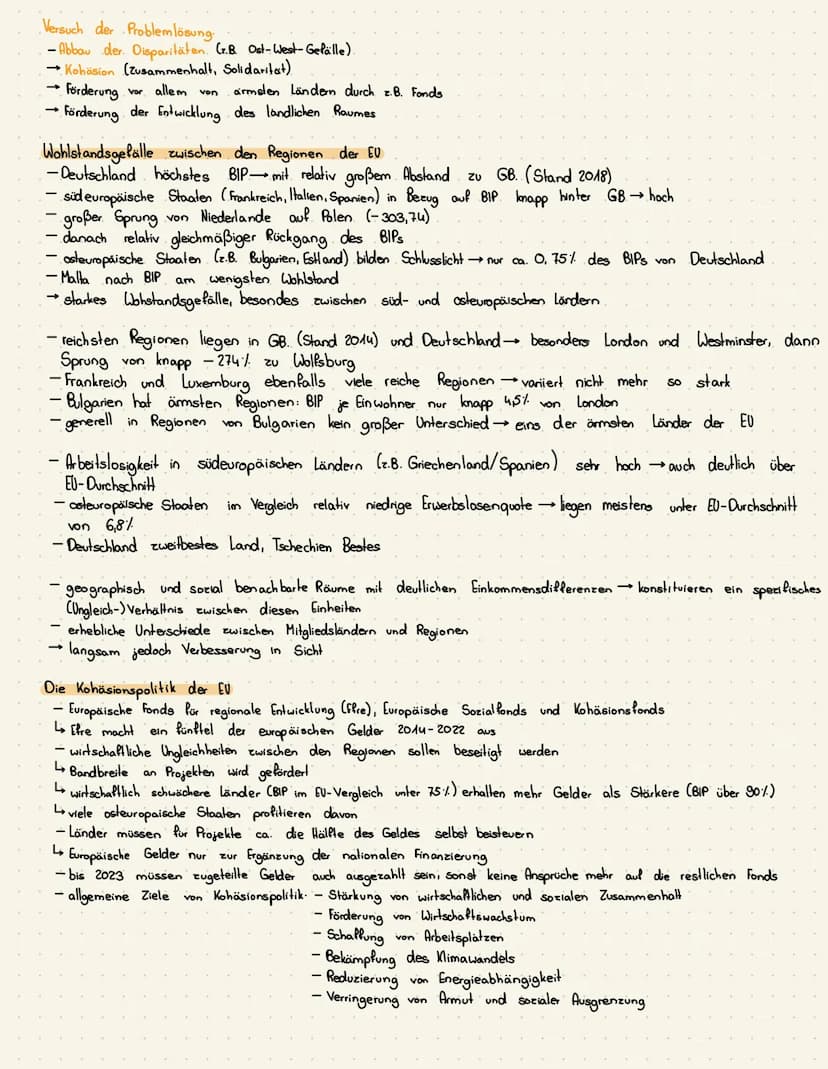 Versuch der Problemlösung.
- Abbau der Disparitäten (z.B. Ost-West-Gefälle)
→ Kohäsion (Zusammenhalt, Solidarität)
→ Förderung vor allem von ärmslen Ländern durch z.B. Fonds
→ Förderung der Entwicklung des ländlichen Raumes
Wohlstandsgefälle zwischen den Regionen der EU
- Deutschland höchstes BIP → mit relativ großem Abstand zu GB. (Stand 2018)
- südeuropäische Staaten (Frankreich, Italien, Spanien) in Bezug auf BIP knapp hinter GB → hoch
- großer Sprung von Niederlande auf Polen (-303,74)
- danach relativ gleichmäßiger Rückgang des BIPs
- osteuropäische Staaten (z.B. Bulgarien, Estland) bilden Schlusslicht → nur ca. 0,75% des BIPs von Deutschland
- Malta nach BIP am wenigsten Wohlstand
→ starkes Wohstandsgefälle, besondes zwischen süd- und osteuropäischen Ländern
- reichsten Regionen liegen in GB. (Stand 2014) und Deutschland → besonders London und Westminster, dann
Sprung von knapp -274% zu Wolfsburg
- Frankreich und Luxemburg ebenfalls viele reiche Regionen → variiert nicht mehr so stark
- Bulgarien hat ärmsten Regionen: BIP je Einwohner nur knapp 4,5% von London
- generell in Regionen von Bulgarien kein großer Unterschied → eins der ärmsten Länder der EU
- Arbeitslosigkeit in südeuropäischen Ländern (z.B. Griechenland/Spanien) sehr hoch → auch deutlich über
EU-Durchschnitt
- osteuropäische Staaten im Vergleich relativ niedrige Erwerbslosenquote → liegen meistens unter EU-Durchschnitt
von 6,8%
- Deutschland zweitbestes Land, Tschechien Bestes
- geographisch und sozial benachbarte Räume mit deutlichen Einkommensdifferenzen → konstituieren ein spezifisches
(Ungleich-)Verhältnis zwischen diesen Einheiten
- erhebliche Unterschiede zwischen Mitgliedsländern und Regionen
→ langsam jedoch Verbesserung in Sicht
Die Kohäsionspolitik der EU
- Europäische Fonds für regionale Entwicklung (Efre), Europäische Sozialfonds und Kohäsionsfonds
↳ Efre macht ein fünftel der europäischen Gelder 2014-2022 aus
- wirtschaftliche Ungleichheiten zwischen den Regionen sollen beseitigt werden
↳ Bandbreite an Projekten wird gefördert
↳ wirtschaftlich schwächere Länder (BIP im EU-Vergleich unter 75%) erhalten mehr Gelder als Stärkere (BIP über 90%)
↳ viele osteuropäische Staaten profitieren davon
- Länder müssen für Projekte ca. die Hälfte des Geldes selbst beisteuern
↳ Europäische Gelder nur zur Ergänzung der nationalen Finanzierung
- bis 2023 müssen zugeteilte Gelder auch ausgezahlt sein, sonst keine Ansprüche mehr auf die restlichen Fonds
- allgemeine Ziele von Kohäsionspolitik: - Stärkung von wirtschaftlichen und sozialen Zusammenhalt
- Förderung von Wirtschaftswachstum
- Schaffung von Arbeitsplätzen
- Bekämpfung des Klimawandels
- Reduzierung von Energieabhängigkeit
- Verringerung von Armut und sozialer Ausgrenzung